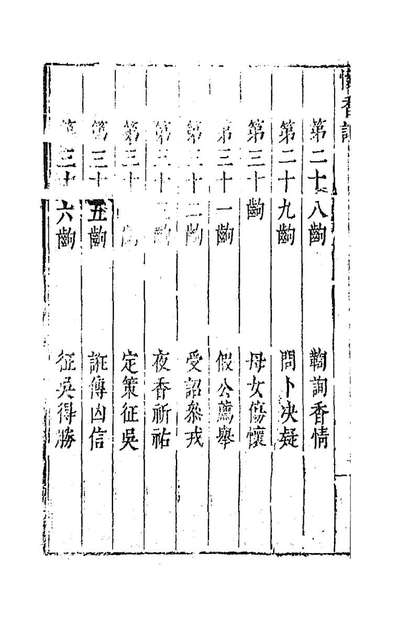 懷香記
第二十八齣 鞫詢香情
第二十九齣 問卜決疑
第三十齣 母女傷懷
第三十一齣 假公薦舉
第三十二齣 受詔叅戎
第三十三齣 夜香祈祐
第三十 齣 定策征吳
第三十五齣 誑傳凶信
第三十六齣 征吳得勝